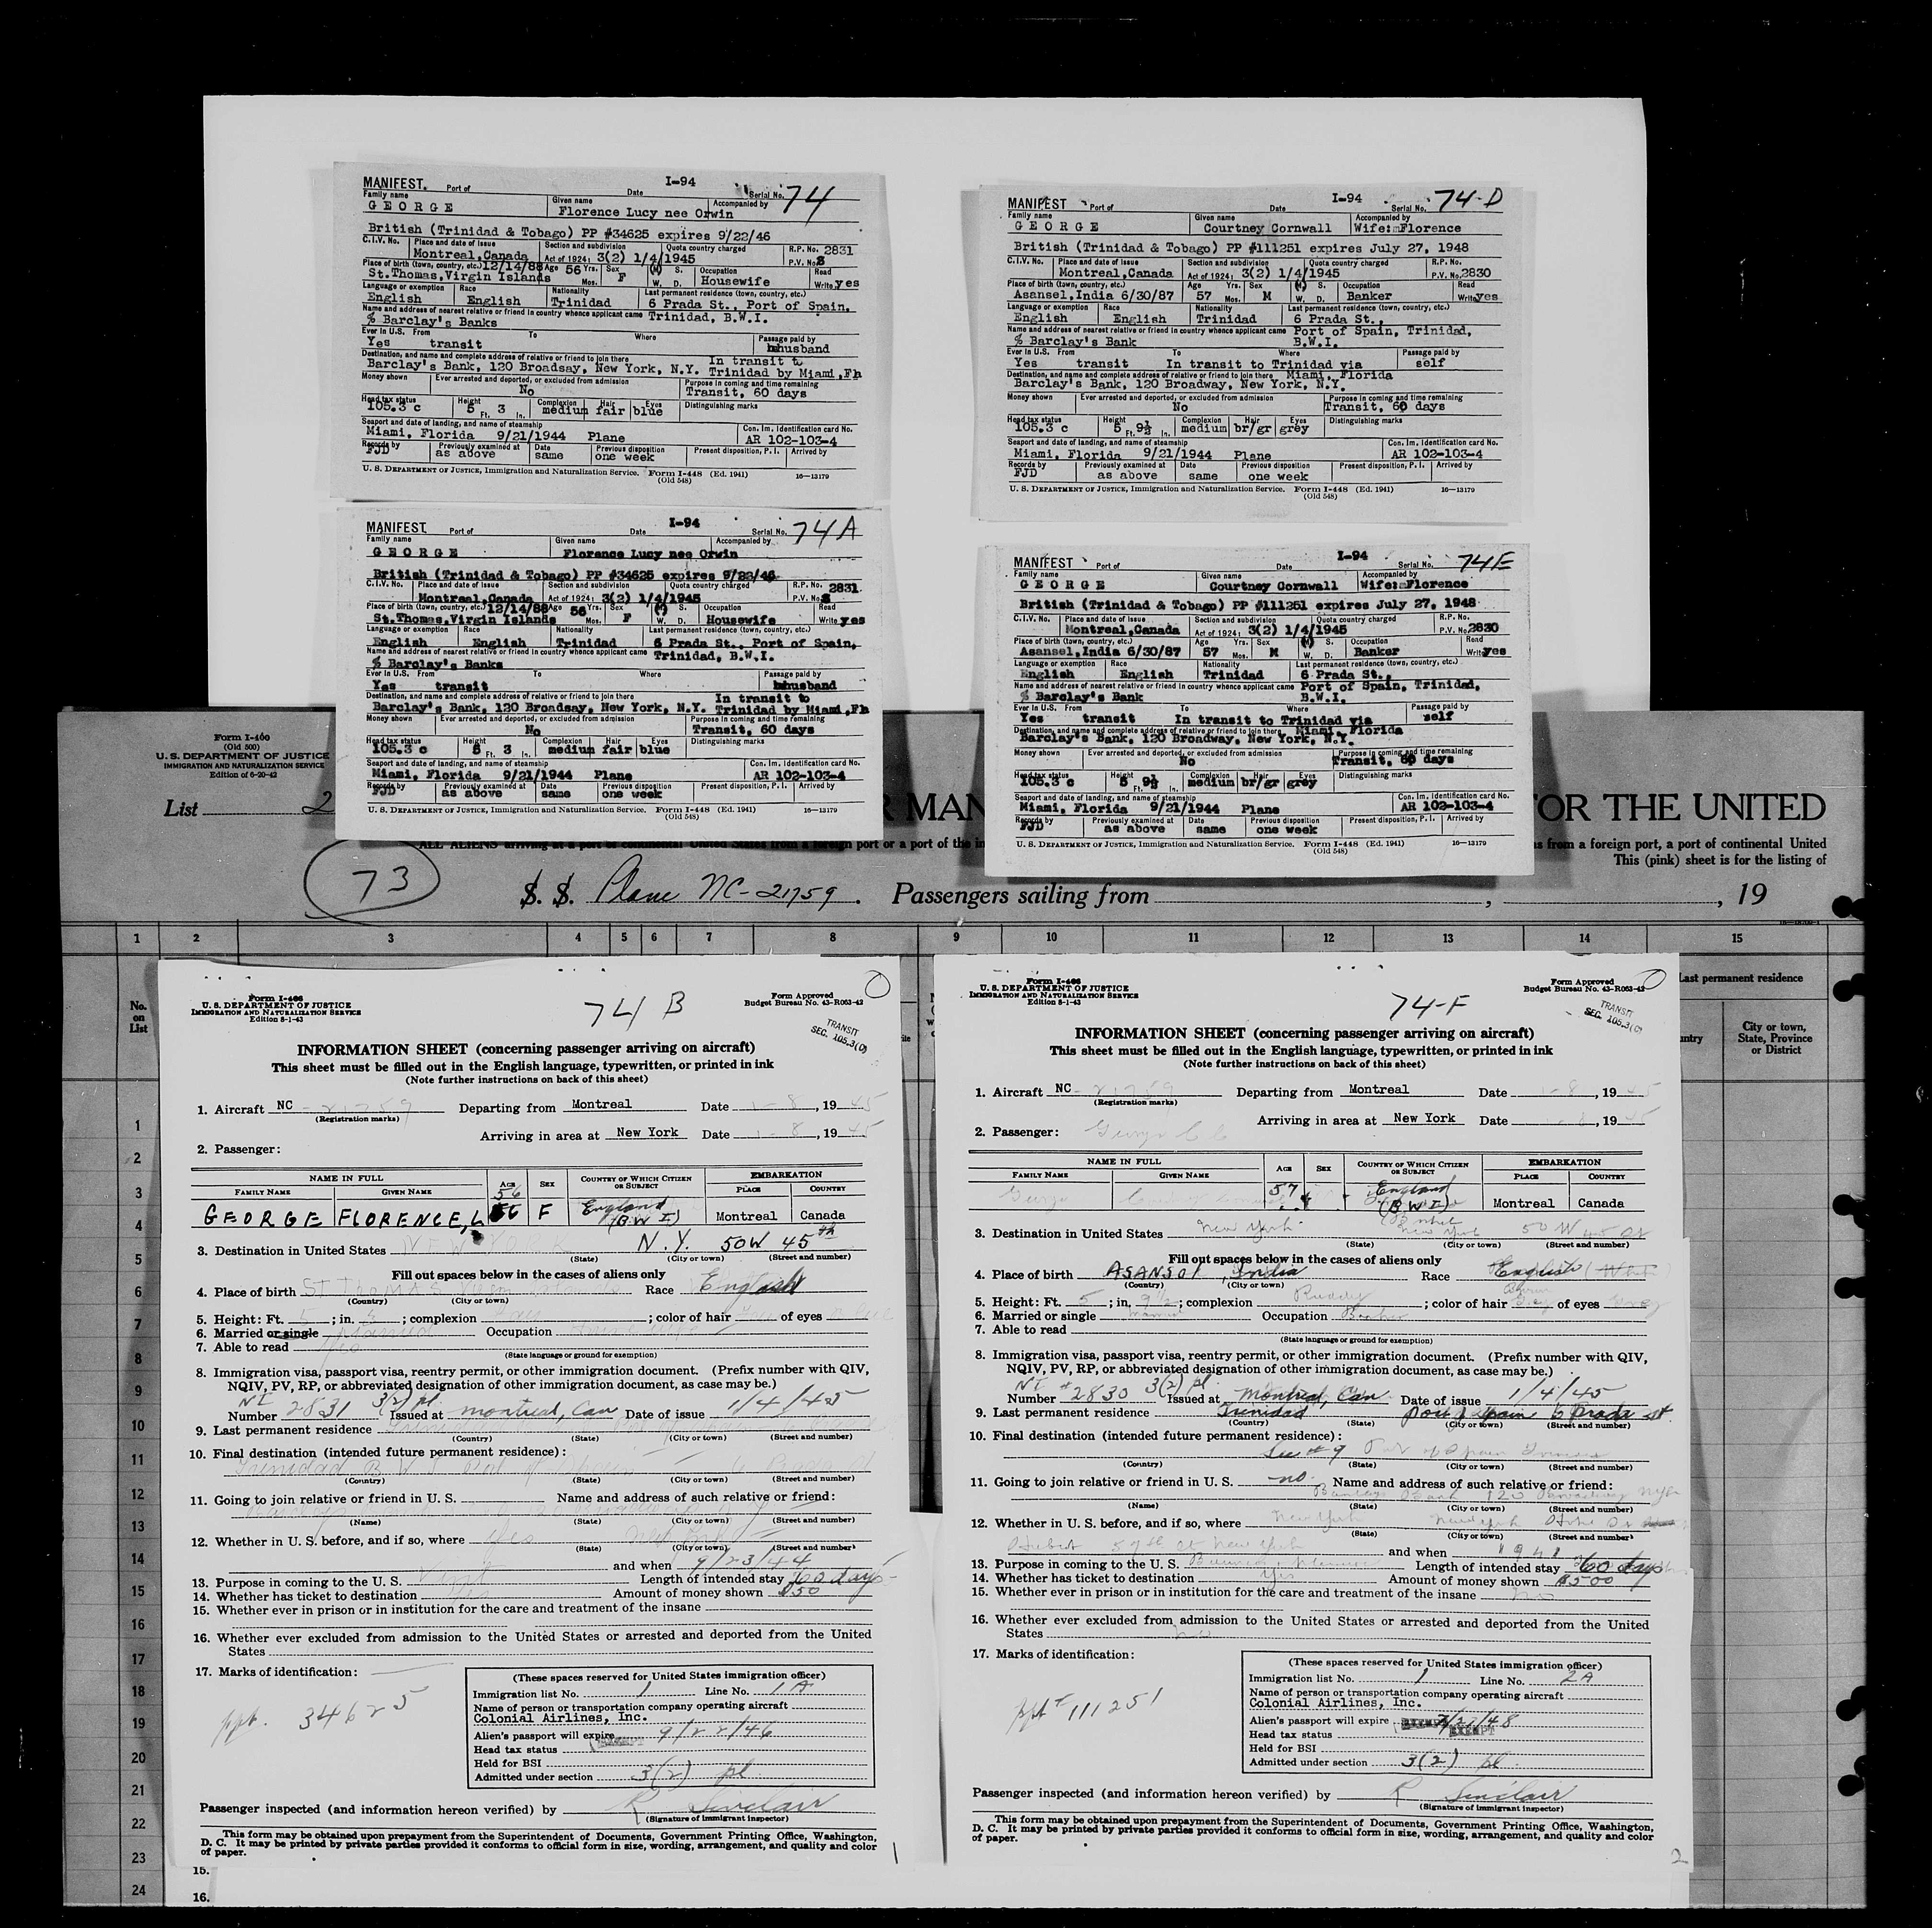 MANIFEST. Port of Date I-94 Serial No. 74
Family name Given name Accompanied by
GEORGE Florence Lucy nee Orwin
British (Trinidad & Tobago) PP #34625 expires 9/22/46
C.I.V. No. Place and date of issue Section and subdivision Quota country charged R.P. No. 2831
Montreal,Canada Act of 1924: 3(2) 1/4/1945 P.V. No.
Place of birth (town, country, etc.) 12/14/88 Age 56 Yrs. Sex (M) S. Occupation Read
St.Thomas,Virgin Islands Mos. F W. D. Housewife Write yes
Language or exemption Race Nationality Last permanent residence (town, country, etc.)
English English Trinidad 6 Prada St., Port of Spain,
Name and address of nearest relative or friend in country whence applicant came Trinidad, B.W.I.
% Barclay's Banks
Ever in U.S. From To Where Passage paid by
Yes transit husband
Destination, and name and complete address of relative or friend to join there In transit to
Barclay's Bank, 120 Broadsay, New York, N.Y. Trinidad by Miami,Fla
Money shown Ever arrested and deported, or excluded from admission Purpose in coming and time remaining
No Transit, 60 days
Head tax status Height Complexion Hair Eyes Distinguishing marks
105.3 c 5 Ft. 3 In. medium fair blue
Seaport and date of landing, and name of steamship Con. Im. Identification card No.
Miami, Florida 9/21/1944 Plane AR 102-103-4
Records by Previously examined at Date Previous disposition Present disposition, P. I. Arrived by
FJD as above same one week
U. S. DEPARTMENT OF JUSTICE, Immigration and Naturalization Service. Form I-448 (Ed. 1941) 16—13179
(Old 548)
MANIFEST Port of Date I-94 Serial No. 74-D
Family name Given name Accompanied by
GEORGE Courtney Cornwall Wife: Florence
British (Trinidad & Tobago) PP #111251 expires July 27, 1948
C.I.V. No. Place and date of issue Section and subdivision Quota country charged R.P. No.
Montreal,Canada Act of 1924: 3(2) 1/4/1945 P.V. No. 2830
Place of birth (town, country, etc.) Age Yrs. Sex (M) S. Occupation Read
Asansel,India 6/30/87 57 Mos. M W. D. Banker Write yes
Language or exemption Race Nationality Last permanent residence (town, country, etc.)
English English Trinidad 6 Prada St.,
Name and address of nearest relative or friend in country whence applicant came Port of Spain, Trinidad,
% Barclay's Bank B.W.I.
Ever in U.S. From To Where Passage paid by
Yes transit In transit to Trinidad via self
Destination, and name and complete address of relative or friend to join there Miami, Florida
Barclay's Bank, 120 Broadway, New York, N.Y.
Money shown Ever arrested and deported, or excluded from admission Purpose in coming and time remaining
No Transit, 60 days
Head tax status Height Complexion Hair Eyes Distinguishing marks
105.3 c 5 Ft. 9½ In. medium br/gr grey
Seaport and date of landing, and name of steamship Con. Im. Identification card No.
Miami, Florida 9/21/1944 Plane AR 102-103-4
Records by Previously examined at Date Previous disposition Present disposition, P. I. Arrived by
FJD as above same one week
U. S. DEPARTMENT OF JUSTICE, Immigration and Naturalization Service. Form I-448 (Ed. 1941) 16—13179
(Old 548)
MANIFEST Port of Date I-94 Serial No. 74A
Family name Given name Accompanied by
GEORGE Florence Lucy nee Orwin
British (Trinidad & Tobago) PP #34625 expires 9/22/46
C.I.V. No. Place and date of issue Section and subdivision Quota country charged R.P. No. 2831
Montreal,Canada Act of 1924: 3(2) 1/4/1945 P.V. No.
Place of birth (town, country, etc.) 12/14/88 Age 56 Yrs. Sex (M) S. Occupation Read
St.Thomas,Virgin Islands Mos. F W. D. Housewife Write yes
Language or exemption Race Nationality Last permanent residence (town, country, etc.)
English English Trinidad 6 Prada St., Port of Spain,
Name and address of nearest relative or friend in country whence applicant came Trinidad, B.W.I.
% Barclay's Banks
Ever in U.S. From To Where Passage paid by
Yes transit husband
Destination, and name and complete address of relative or friend to join there In transit to
Barclay's Bank, 120 Broadsay, New York, N.Y. Trinidad by Miami,Fla
Money shown Ever arrested and deported, or excluded from admission Purpose in coming and time remaining
No Transit, 60 days
Head tax status Height Complexion Hair Eyes Distinguishing marks
105.3 c 5 Ft. 3 In. medium fair blue
Seaport and date of landing, and name of steamship Con. Im. Identification card No.
Miami, Florida 9/21/1944 Plane AR 102-103-4
Records by Previously examined at Date Previous disposition Present disposition, P. I. Arrived by
FJD as above same one week
U. S. DEPARTMENT OF JUSTICE, Immigration and Naturalization Service. Form I-448 (Ed. 1941) 16—13179
(Old 548)
MANIFEST Port of Date I-94 Serial No. 74E
Family name Given name Accompanied by
GEORGE Courtney Cornwall Wife: Florence
British (Trinidad & Tobago) PP #111251 expires July 27, 1948
C.I.V. No. Place and date of issue Section and subdivision Quota country charged R.P. No.
Montreal,Canada Act of 1924: 3(2) 1/4/1945 P.V. No. 2830
Place of birth (town, country, etc.) Age Yrs. Sex (M) S. Occupation Read
Asansel,India 6/30/87 57 Mos. M W. D. Banker Write yes
Language or exemption Race Nationality Last permanent residence (town, country, etc.)
English English Trinidad 6 Prada St.,
Name and address of nearest relative or friend in country whence applicant came Port of Spain, Trinidad,
% Barclay's Bank B.W.I.
Ever in U.S. From To Where Passage paid by
Yes transit In transit to Trinidad via self
Destination, and name and complete address of relative or friend to join there Miami, Florida
Barclay's Bank, 120 Broadway, New York, N.Y.
Money shown Ever arrested and deported, or excluded from admission Purpose in coming and time remaining
No Transit, 60 days
Head tax status Height Complexion Hair Eyes Distinguishing marks
105.3 c 5 Ft. 9½ In. medium br/gr grey
Seaport and date of landing, and name of steamship Con. Im. Identification card No.
Miami, Florida 9/21/1944 Plane AR 102-103-4
Records by Previously examined at Date Previous disposition Present disposition, P. I. Arrived by
FJD as above same one week
U. S. DEPARTMENT OF JUSTICE, Immigration and Naturalization Service. Form I-448 (Ed. 1941) 16—13179
(Old 548)
Form I-400
(Old 500)
U. S. DEPARTMENT OF JUSTICE
IMMIGRATION AND NATURALIZATION SERVICE
Edition of 6-20-42
List 2 R MAN OR THE UNITED
ALL ALIENS arriving at a port of continental United States from a foreign port or a port of the in s from a foreign port, a port of continental United
This (pink) sheet is for the listing of
73 S. S. Plane NC-21759. Passengers sailing from , , 19
1 2 3 4 5 6 7 8 9 10 11 12 13 14 15
No. on List
Last permanent residence
untry City or town, State, Province or District
1
2
3
4
5
6
7
8
9
10
11
12
13
14
15
16
17
18
19
20
21
22
23
24
Form I-466
U. S. DEPARTMENT OF JUSTICE
IMMIGRATION AND NATURALIZATION SERVICE
Edition 8-1-43
74 B
Form Approved
Budget Bureau No. 43-R063-42
TRANSIT
SEC. 105.3(C)
INFORMATION SHEET (concerning passenger arriving on aircraft)
This sheet must be filled out in the English language, typewritten, or printed in ink
(Note further instructions on back of this sheet)
1. Aircraft NC-21759 Departing from Montreal Date 1-8, 1945
(Registration marks)
Arriving in area at New York Date 1-8, 1945
2. Passenger:
NAME IN FULL AGE SEX COUNTRY OF WHICH CITIZEN OR SUBJECT EMBARKATION
FAMILY NAME GIVEN NAME PLACE COUNTRY
56
GEORGE FLORENCE, L F England (BWI) Montreal Canada
3. Destination in United States NEW YORK N.Y. 50W 45th
(State) (City or town) (Street and number)
Fill out spaces below in the cases of aliens only
4. Place of birth ST THOMAS Race English
(Country) (City or town)
5. Height: Ft. 5; in. ; complexion ; color of hair of eyes
6. Married or single Married Occupation
7. Able to read Yes
(State language or ground for exemption)
8. Immigration visa, passport visa, reentry permit, or other immigration document. (Prefix number with QIV,
NQIV, PV, RP, or abbreviated designation of other immigration document, as case may be.)
NI 3(2) pl
Number 2831 Issued at Montreal, Can Date of issue 1/4/45
9. Last permanent residence
(Country) (State) (City or town) (Street and number)
10. Final destination (intended future permanent residence):
Trinidad B W I Port of Spain
(Country) (State) (City or town) (Street and number)
11. Going to join relative or friend in U. S. Name and address of such relative or friend:
(Name) (State) (City or town) (Street and number)
12. Whether in U. S. before, and if so, where Yes New York
(State) (City or town) (Street and number)
and when 9/23/44
13. Purpose in coming to the U. S. Visit Length of intended stay 60 days
14. Whether has ticket to destination Yes Amount of money shown $50
15. Whether ever in prison or in institution for the care and treatment of the insane
16. Whether ever excluded from admission to the United States or arrested and deported from the United
States
17. Marks of identification:
ppt. 34625
(These spaces reserved for United States immigration officer)
Immigration list No. 1 Line No. 1A
Name of person or transportation company operating aircraft
Colonial Airlines, Inc.
Alien's passport will expire 9/22/46
Head tax status EXEMPT
Held for BSI
Admitted under section 3(2) pl.
Passenger inspected (and information hereon verified) by R Sinclair
(Signature of immigrant inspector)
This form may be obtained upon prepayment from the Superintendent of Documents, Government Printing Office, Washington,
D. C. It may be printed by private parties provided it conforms to official form in size, wording, arrangement, and quality and color
of paper.
1
15.
16.
Form I-466
U. S. DEPARTMENT OF JUSTICE
IMMIGRATION AND NATURALIZATION SERVICE
Edition 8-1-43
74-F
Form Approved
Budget Bureau No. 43-R063-42
TRANSIT
SEC. 105.3(C)
INFORMATION SHEET (concerning passenger arriving on aircraft)
This sheet must be filled out in the English language, typewritten, or printed in ink
(Note further instructions on back of this sheet)
1. Aircraft NC-21759 Departing from Montreal Date 1-8, 1945
(Registration marks)
Arriving in area at New York Date 1-8, 1945
2. Passenger: George C C
NAME IN FULL AGE SEX COUNTRY OF WHICH CITIZEN OR SUBJECT EMBARKATION
FAMILY NAME GIVEN NAME PLACE COUNTRY
George 57 England (BWI) Montreal Canada
3. Destination in United States New York New York 50 W 45 St
(State) (City or town) (Street and number)
Fill out spaces below in the cases of aliens only
4. Place of birth ASANSOL, India Race English
(Country) (City or town)
5. Height: Ft. 5; in. 9½; complexion Ruddy; color of hair Grey of eyes Grey
6. Married or single Married Occupation Banker
7. Able to read
(State language or ground for exemption)
8. Immigration visa, passport visa, reentry permit, or other immigration document. (Prefix number with QIV,
NQIV, PV, RP, or abbreviated designation of other immigration document, as case may be.)
NI 3(2) pl.
Number #2830 Issued at Montreal, Can Date of issue 1/4/45
9. Last permanent residence Trinidad Port of Spain 6 Prada St
(Country) (State) (City or town) (Street and number)
10. Final destination (intended future permanent residence):
See #9 Port of Spain Trinidad
(Country) (State) (City or town) (Street and number)
11. Going to join relative or friend in U. S. no. Name and address of such relative or friend:
Barclays Bank 120 Broadway NYC
(Name) (State) (City or town) (Street and number)
12. Whether in U. S. before, and if so, where New York New York
(State) (City or town) (Street and number)
57th St New York and when 1941
13. Purpose in coming to the U. S. Business Pleasure Length of intended stay 60 days
14. Whether has ticket to destination Yes Amount of money shown $500
15. Whether ever in prison or in institution for the care and treatment of the insane No
16. Whether ever excluded from admission to the United States or arrested and deported from the United
States No
17. Marks of identification:
ppt # 111251
(These spaces reserved for United States immigration officer)
Immigration list No. 1 Line No. 2A
Name of person or transportation company operating aircraft
Colonial Airlines, Inc.
Alien's passport will expire 7/27/48
Head tax status EXEMPT
Held for BSI
Admitted under section 3(2) pl.
Passenger inspected (and information hereon verified) by R Sinclair
(Signature of immigrant inspector)
This form may be obtained upon prepayment from the Superintendent of Documents, Government Printing Office, Washington,
D. C. It may be printed by private parties provided it conforms to official form in size, wording, arrangement, and quality and color
of paper.
2